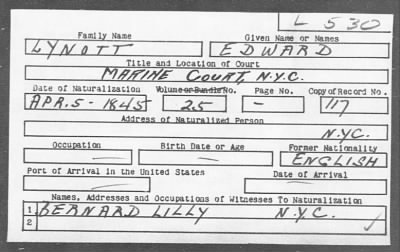 L 530
Family Name Given Name or Names
LYNOTT EDWARD
Title and Location of Court
MARINE COURT, N.Y.C.
Date of Naturalization Volume or Bundle No. Page No. Copy of Record No.
APR. 5 - 1845 25 - 117
Address of Naturalized Person
N.Y.C.
Occupation Birth Date or Age Former Nationality
— — ENGLISH
Port of Arrival in the United States Date of Arrival
— —
Names, Addresses and Occupations of Witnesses To Naturalization
1 BERNARD LILLY N.Y.C.
2